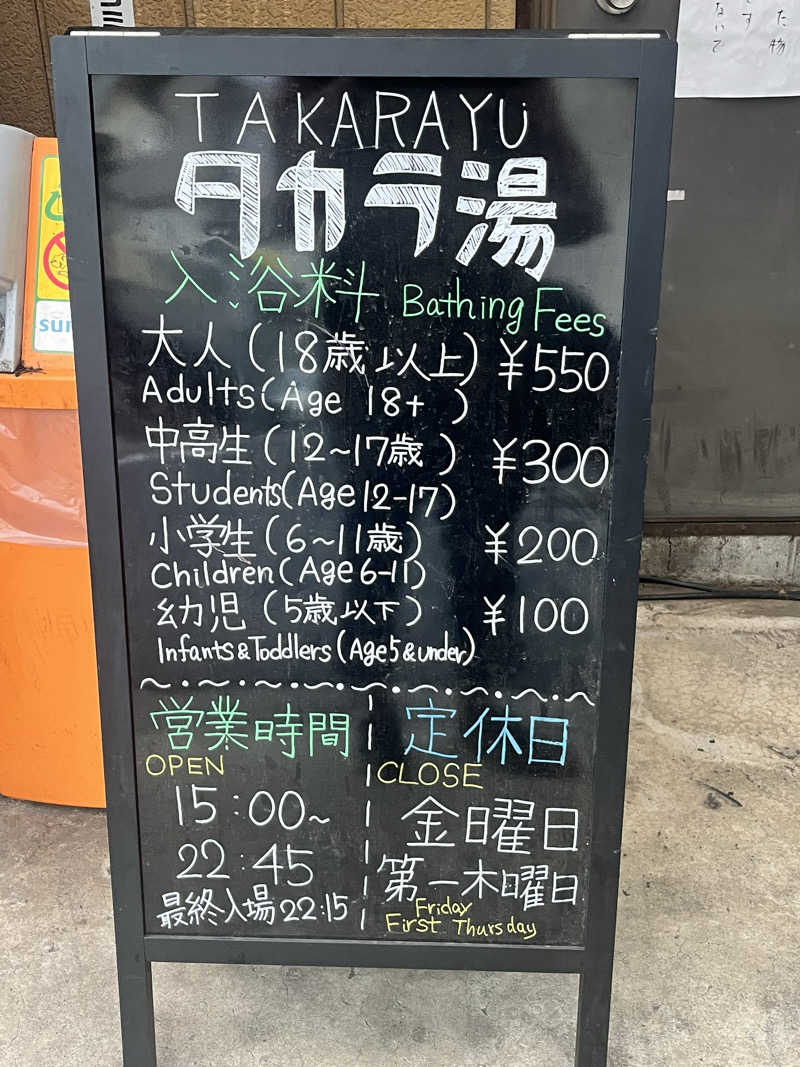 TAKARAYU
タカラ湯
入浴料 Bathing Fees
大人(18歳以上) ¥550
Adults(Age 18+ )
中高生(12~17歳 ) ¥300
Students(Age12-17)
小学生(6~11歳) ¥200
Children(Age6-11)
幼児(5歳以下) ¥100
Infants&Toddlers(Age5&under)
営業時間
OPEN
15:00~
22:45
最終入場22:15
定休日
CLOSE
金曜日
第一木曜日
Friday
First Thursday
sun